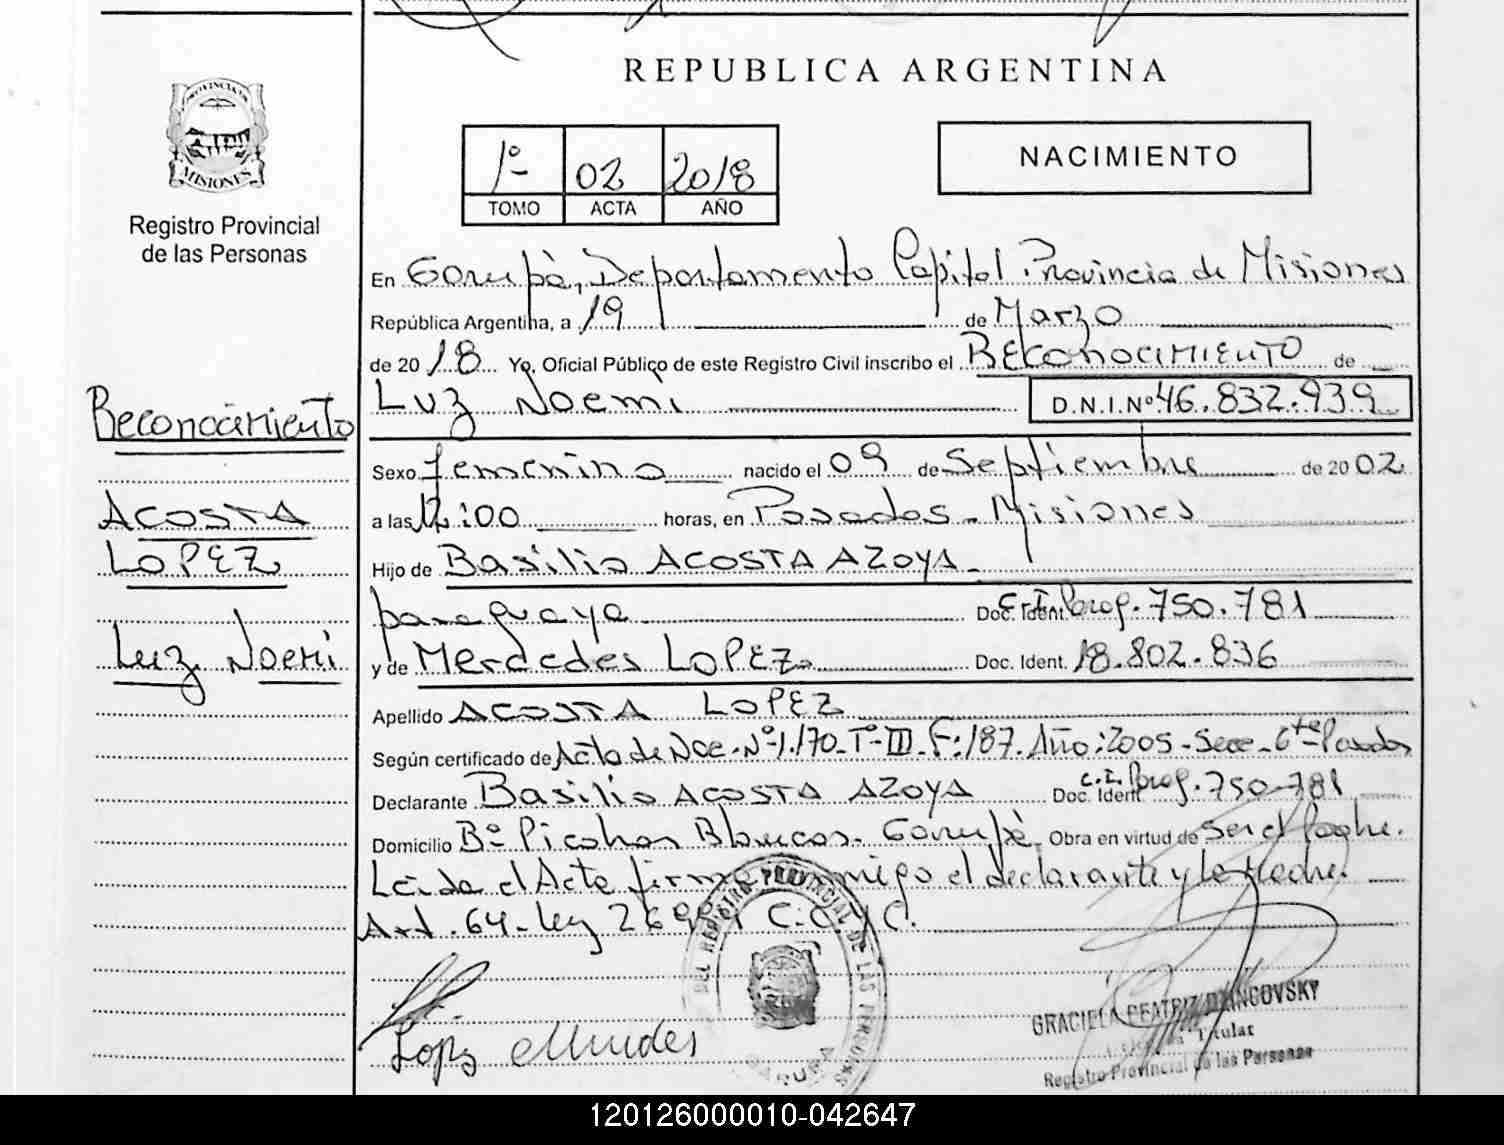 REPUBLICA ARGENTINA
PROVINCIA DE
MISIONES
Registro Provincial
de las Personas
1º 02 2018
TOMO ACTA AÑO
NACIMIENTO
En Garupà, Departamento Capital. Provincia de Misiones
República Argentina, a 19 de Marzo
de 20 18 Yo, Oficial Público de este Registro Civil inscribo el Reconocimiento de
Luz Noemi D.N.I.Nº 46.832.939
Reconocimiento
ACOSTA
LOPEZ
Luz Noemi
Sexo femenino nacido el 09 de Septiembre de 20 02
a las 12:00 horas, en Posadas - Misiones
Hijo de Basilio ACOSTA AZOYA -
paraguaya Doc. Ident. C.I. Parag. 750.781
y de Merdedes LOPEZ Doc. Ident. 18.802.836
Apellido ACOSTA LOPEZ
Según certificado de Acta de Nac. Nº 1.170 - Tº III - F: 187. Año: 2005 - Secc - 6ta Posadas
Declarante Basilio ACOSTA AZOYA Doc. Ident. C.I. Parag. 750.781
Domicilio Bº Picahas Blancas - Garupà Obra en virtud de Ser el Padre.
Leida el Acta firma conmigo el declarante y la Madre.
Art. 64 - Ley 26994 C.C.y C.
DEL REGISTRO PROVINCIAL DE LAS PERSONAS
GARUPA
Lopz
GRACIELA BEATRIZ DZINCOVSKY
Titular
Registro Provincial de las Personas
120126000010-042647